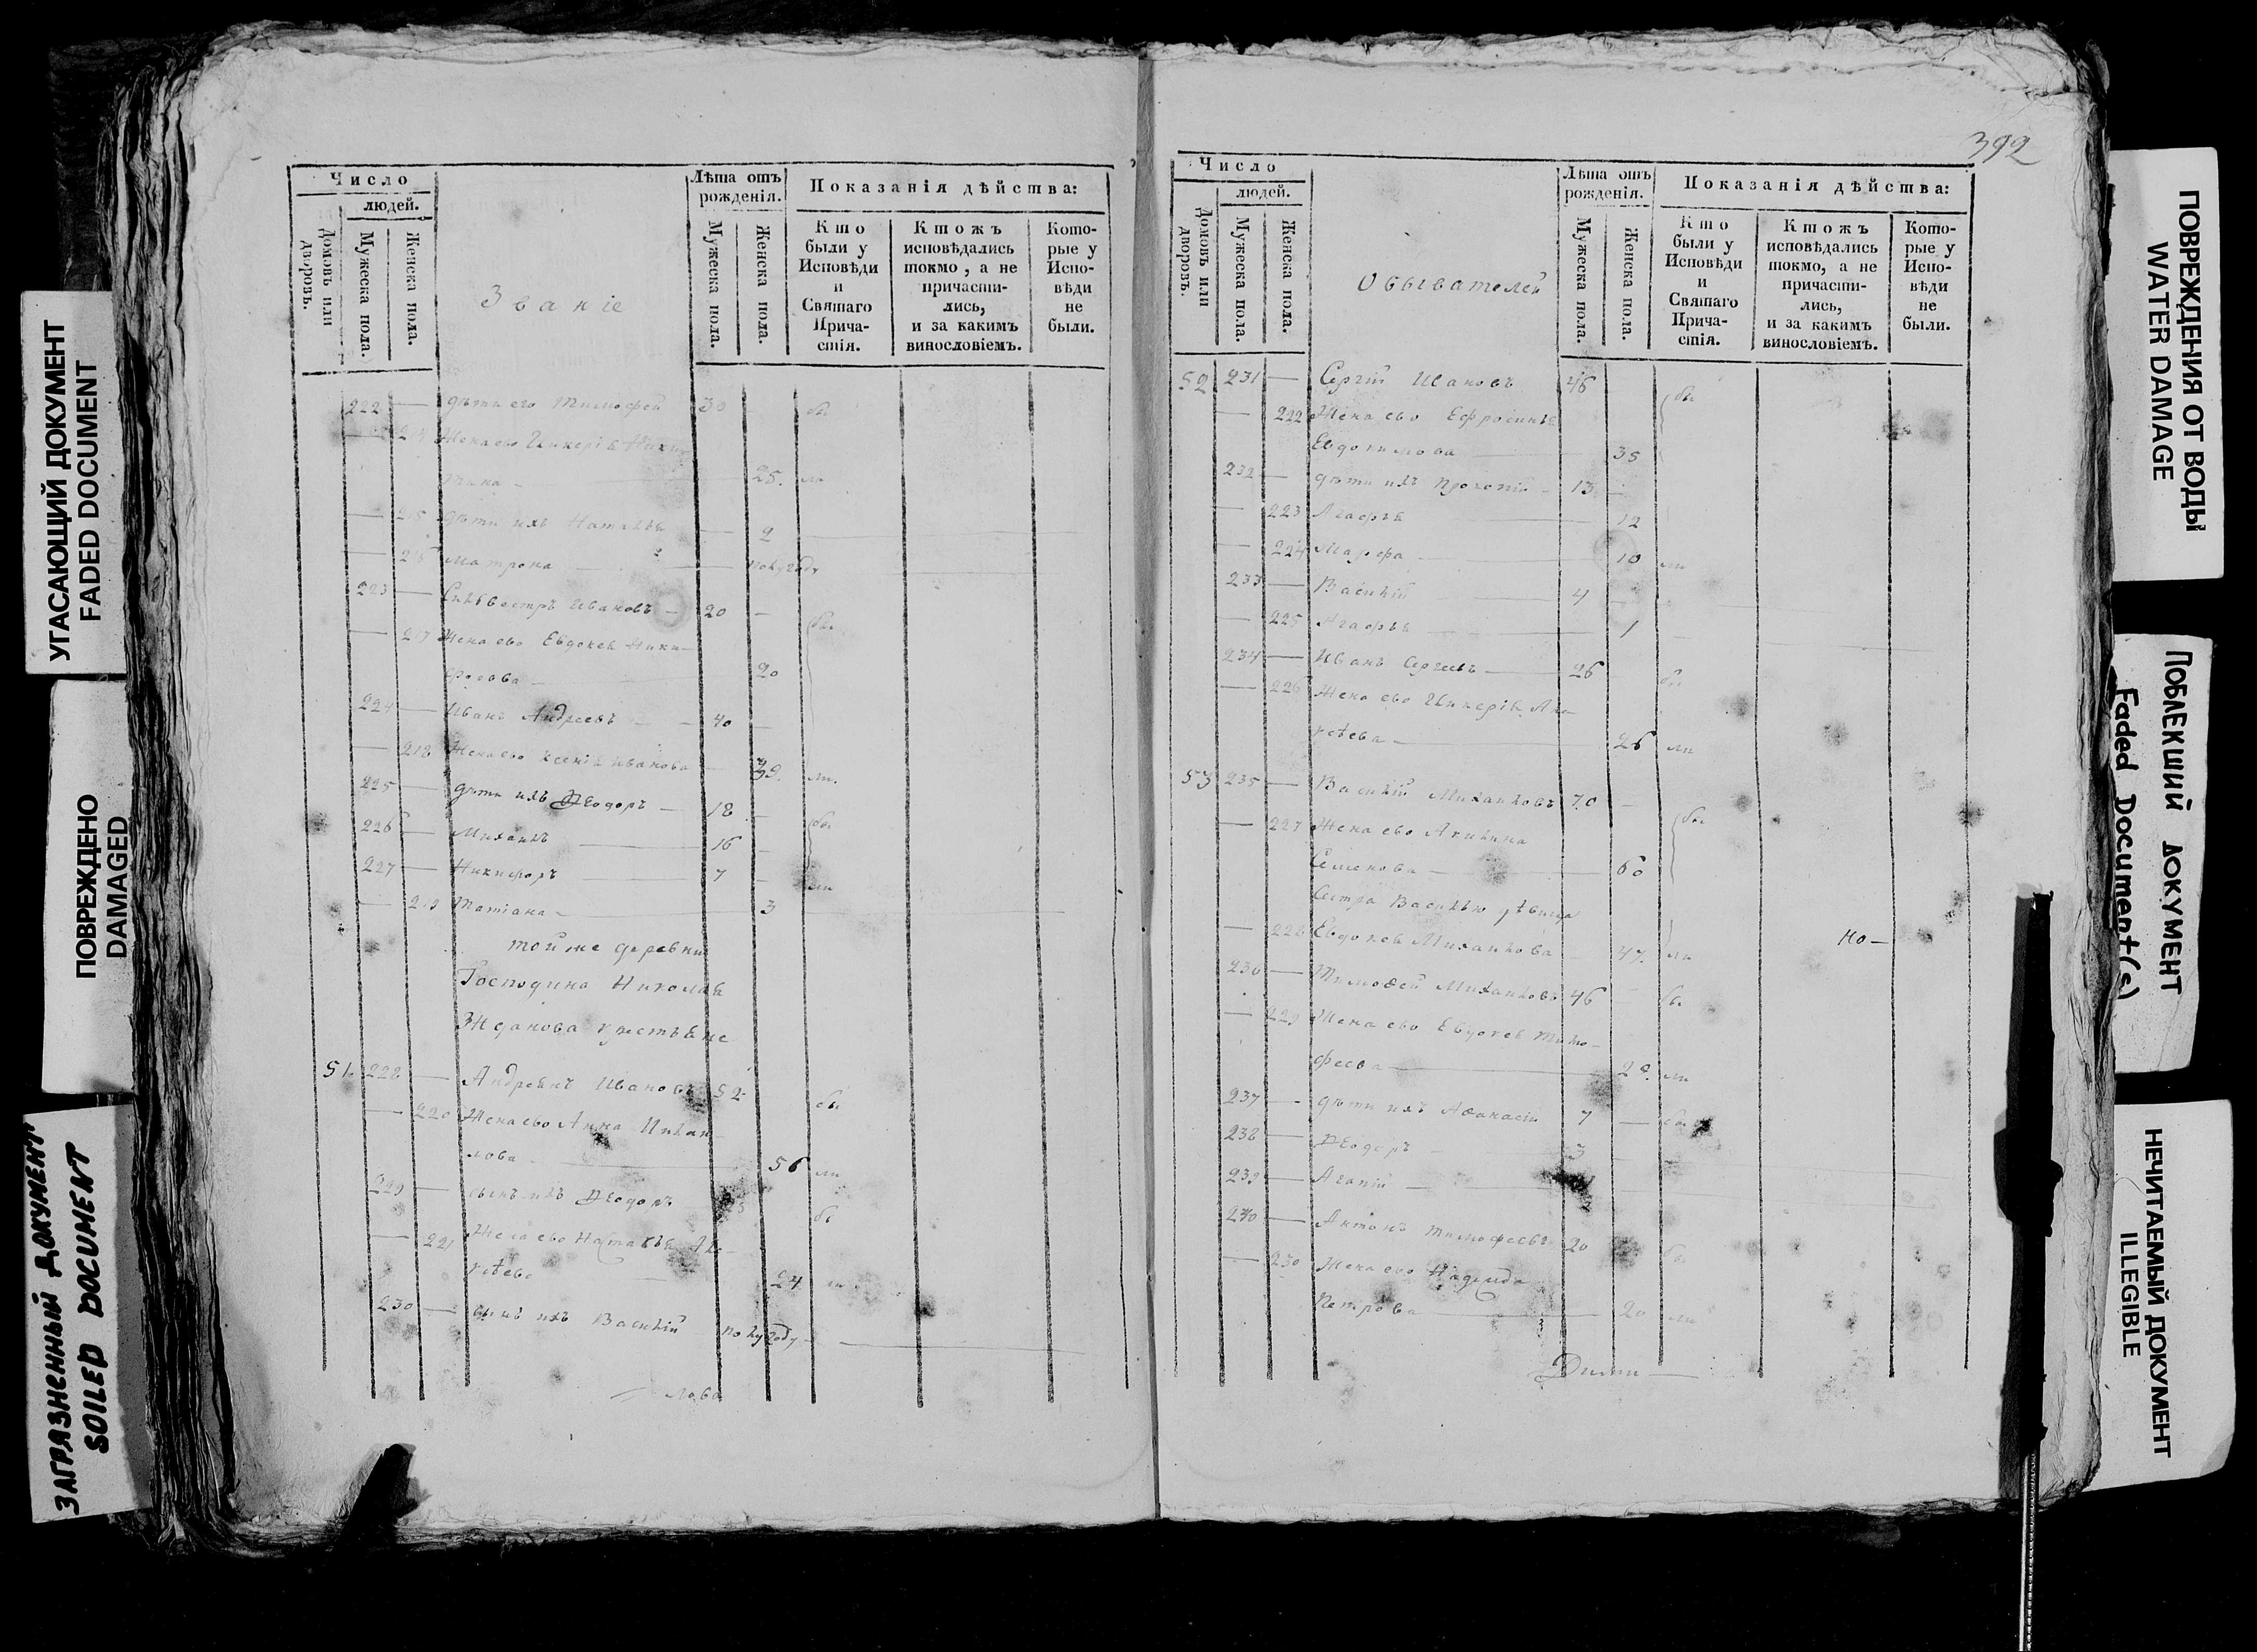 УГАСАЮЩИЙ ДОКУМЕНТ
FADED DOCUMENT
ПОВРЕЖДЕНО
DAMAGED
ЗАГРЯЗНЕННЫЙ ДОКУМЕНТ
SOILED DOCUMENT
Число
людей.
Домовъ или дворовъ.
Мужеска пола.
Женска пола.
Званіе
Лѣта отъ рожденія.
Мужеска пола.
Женска пола.
Показанія дѣйства:
Кто были у Исповѣди и Святаго Прича-стія.
Ктожъ исповѣдались токмо, а не причасти-лись, и за какимъ винословіемъ.
Кото-рые у Испо-вѣди не были.
222 — дѣти его Тимофей 30 бы
Жена ево Гликерія
25.
— 215 дѣти ихъ Наталья — 2
— 216 Матрона — полугоду
223 — Силвестръ Ивановъ — 20 —
— 217 Жена ево Евдокея Ники-
форова — 20
224 — Иванъ Андреевъ — 40 —
— 218 Жена ево Ксенія Иванова — 39. ли.
225 — дѣти ихъ Ѳеодоръ — 18 —
226 — Михаилъ — 16 — бы
227 — Никифоръ — 7 — ли
— 219 Татіана — 3
той же деревни
Господина Николая
Жданова крестьяне
51 228 — Андреянъ Ивановъ 52 бы
— 220 Жена ево Анна Михаи-
лова — 56 ли
229 — сынъ ихъ Ѳеодоръ бы
— 221 Жена ево Наталья
24 ли
230 — сынъ ихъ Василій полугоду —
392
Число
людей.
Домовъ или дворовъ.
Мужеска пола.
Женска пола.
Обывателей
Лѣта отъ рожденія.
Мужеска пола.
Женска пола.
Показанія дѣйства:
Кто были у Исповѣди и Святаго Прича-стія.
Ктожъ исповѣдались токмо, а не причасти-лись, и за какимъ винословіемъ.
Кото-рые у Испо-вѣди не были.
52 231 — Сергій Ивановъ 46 бы
— 222 Жена ево Ефросинья
Евдокимова — 35
232 — дѣти ихъ Прокопій — 13 —
— 223 Агафья — 12
— 224 Марфа — 10 ли
233 — Василій — 4 —
— 225 Агафья — 1 —
234 — Иванъ Сергеевъ — 26 бы
— 226 Жена ево Гликерія
26 ли
53 235 — Василій Михайловъ 70 — бы
— 227 Жена ево Акилина
Семенова — 60
Сестра Василью дѣвица
— 228 Евдокея Михайлова — 47. ли но —
236 — Тимоѳей Михайловъ 46 — бы
— 229 Жена ево Евдокея Тимо-
феева — ли
237 — дѣти ихъ Аѳанасій 7 — бы
238 — Ѳеодоръ — 3
239 —
240 — Антонъ Тимофеевъ 20 бы
— 230 Жена ево Надежда
Петрова — 20 ли
ПОВРЕЖДЕНИЯ ОТ ВОДЫ
WATER DAMAGE
ПОБЛЕКШИЙ ДОКУМЕНТ
Faded Document(s)
НЕЧИТАЕМЫЙ ДОКУМЕНТ
ILLEGIBLE